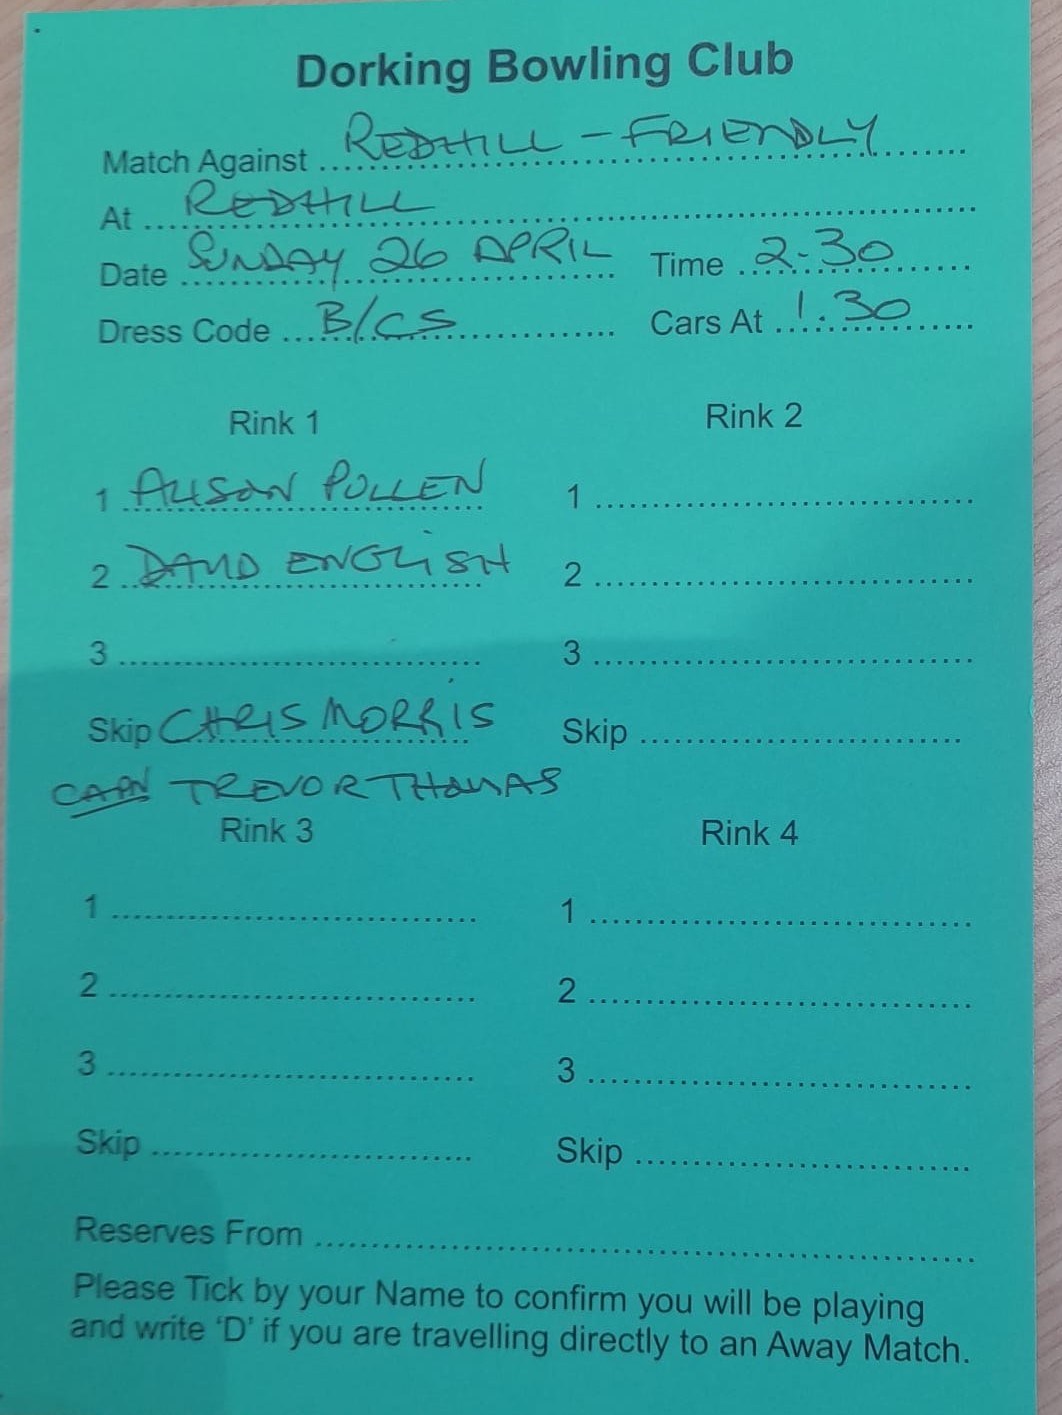 Dorking Bowling Club
Match Against REDHILL - FRIENDLY
At REDHILL
Date SUNDAY 26 APRIL Time 2.30
Dress Code B/CS Cars At 1.30
Rink 1 Rink 2
1 ALISON POLLEN 1
2 DAVID ENGLISH 2
3 3
Skip CHRIS MORRIS Skip
CAPN TREVOR THOMAS
Rink 3 Rink 4
1 1
2 2
3 3
Skip Skip
Reserves From
Please Tick by your Name to confirm you will be playing
and write 'D' if you are travelling directly to an Away Match.